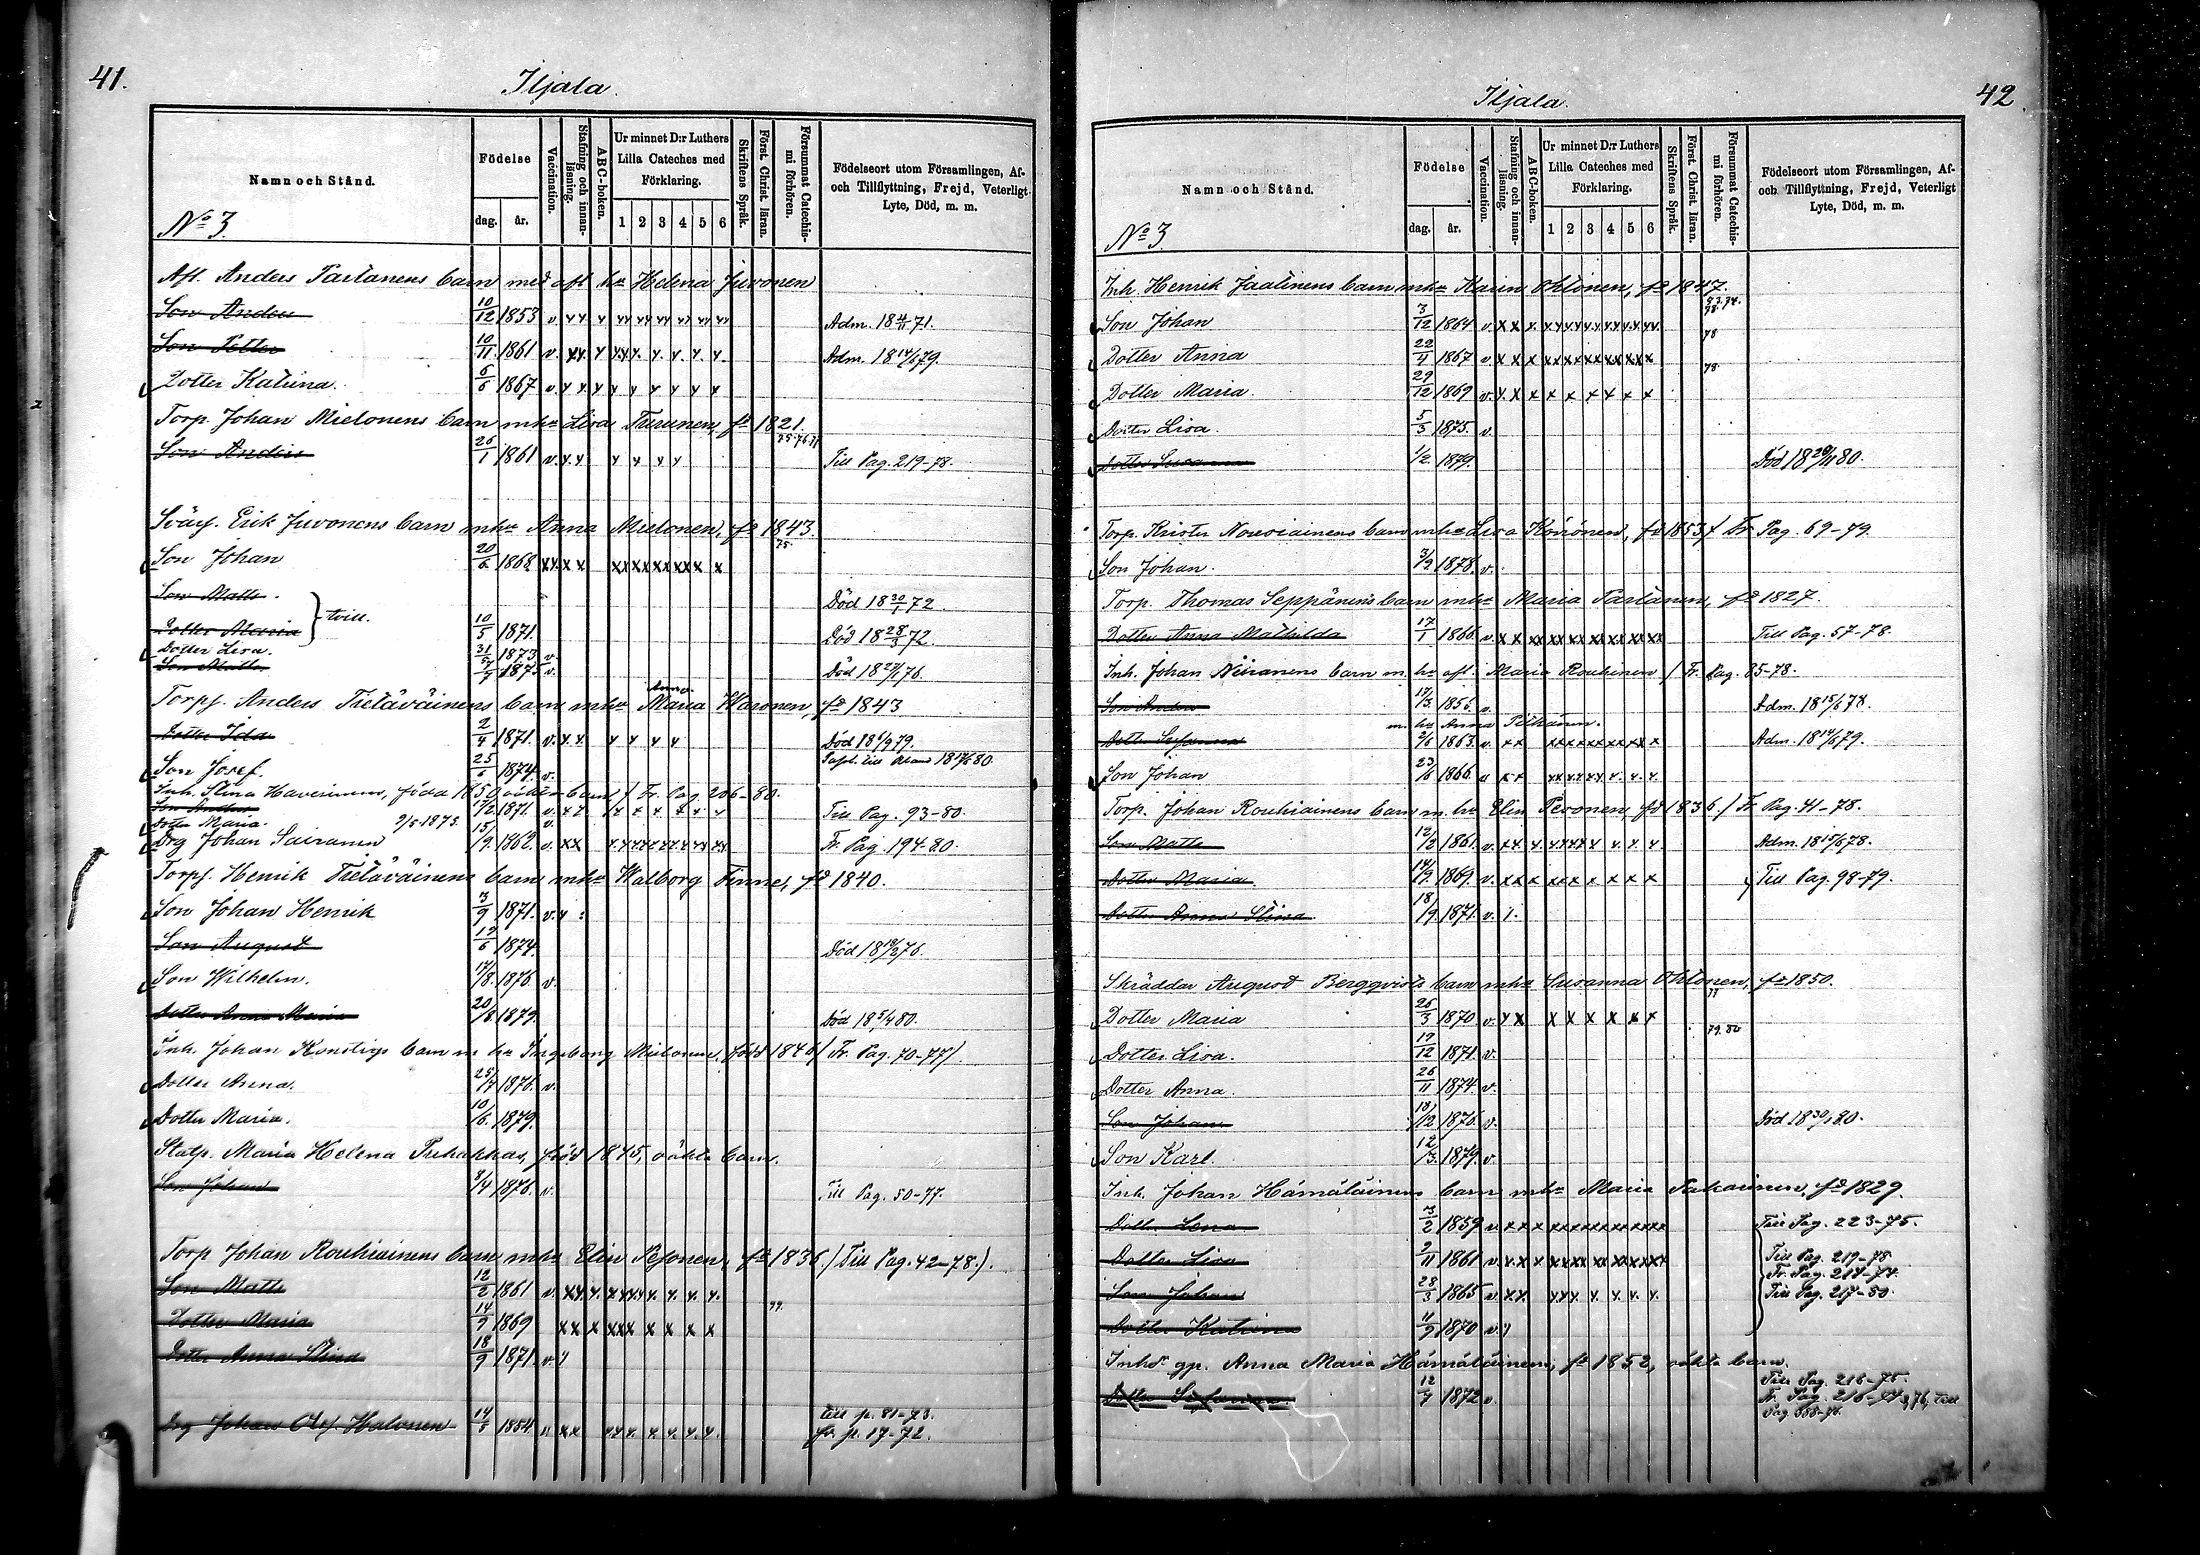 41.
Iljala.
Namn och Stånd.
Födelse
dag. år.
Vaccination.
Stafning och innanläsning.
ABC-boken.
Ur minnet D:r Luthers Lilla Cateches med Förklaring.
1 2 3 4 5 6
Skriftens Språk.
Först. Christ. läran.
Försummat Catechismi förhören.
Födelseort utom Församlingen, Af- och Tillflyttning, Frejd, Veterligt Lyte, Död, m. m.
No 3.
Afl. Anders Partanens barn med afl. hu Helena Juvonen
Son Anders 10/12 1853 v. Adm. 18 4/11 71.
Son Petter 10/11 1861 v. Adm. 18 14/6 79.
Dotter Katrina. 6/6 1867 v.
Torp. Johan Mielonens barn mhu Lisa Turunen, fd 1821.
Son Anders 26/1 1861 v. Till Pag. 219-78.
Erik Juvonens barn mhu Anna Mielonen, fd 1843.
Son Johan 20/6 1868
Son Matts. Död 18 30/1 72
Dotter Maria } tvill. 10/5 1871. Död 18 28/3 72
Dotter Lisa. 1873 v.
Son Matts 1875 v. Död 76.
Torp. Anders Tietäväinens barn mhu Anna Maria Waronen, fd 1843
Dotter Ida 2/4 1871. v. Död 79.
Son Josef. 25/6 1874. v.
Inh. Stina Haverinens, föda 1850 oäkta barn / Fr. Pag. 206-80.
Son Anders 1871. v. Till Pag. 93-80.
Dotter Maria. 2/5 1873. v.
Drg Johan Sairanen 15/9 1862. v. Fr. Pag. 194-80.
Torp. Henrik Tietäväinens barn mhu Walborg Finne, fd 1840.
Son Johan Henrik 3/9 1871. v.
Son August 12/6 1874. Död 76.
Son Wilhelm. 17/8 1876. v.
Dotter Anna Maria 20/8 1879. Död 18 5/4 80.
Inh. Johan barn m hu Ingeborg Mielonen, född 1846 / Fr. Pag. 70-77/.
Dotter Anna. 25/7 1876. v.
Dotter Maria. 10/6 1879.
Statp. Maria Helena född 1845, oäkta barn.
Son Johan 8/4 1876. v. Till Pag. 50-77.
Torp Johan Rouhiainens barn mhu Elin Pesonen, fd 1836. / Till Pag. 42-78.)
Son Matts 12/2 1861 v.
Dotter Maria 14/9 1869
Dotter Anna Stina 18/9 1871. v.
Drg Johan Halonen 14/5 1854. Till p. 81-73.
fr. p. 17-72.
42
Iljala.
Namn och Stånd.
Födelse
dag. år.
Vaccination.
Stafning och innanläsning.
ABC-boken.
Ur minnet D:r Luthers Lilla Cateches med Förklaring.
1 2 3 4 5 6
Skriftens Språk.
Först. Christ. läran.
Försummat Catechismi förhören.
Födelseort utom Församlingen, Af- och Tillflyttning, Frejd, Veterligt Lyte, Död, m. m.
No 3
Inh. Henrik Jaatinens barn mhu Karin Ohtonen, fd 1847.
Son Johan 3/12 1864 v.
Dotter Anna 22/4 1867 v. 78
Dotter Maria. 29/12 1869 v. 78.
Dotter Lisa. 5/5 1875. v.
Dotter Susanna 1/2 1879. Död 18 80.
Torp. Krister barn mhu Lisa Könönen, fd 1853 / Fr Pag. 69-79.
Son Johan. 1878. v.
Torp. Thomas Seppänens barn mhu Maria Partanen, fd 1827.
Dotter Anna Mathilda 17/1 1866 v. Till Pag. 57-78.
Inh. Johan Niiranens barn m. hu afl. Maria Rouhinen / Fr. Pag. 85-78.
Son Anders 17/3 1856. v. Adm. 18 15/6 78.
m. hu Anna
Dott. Susanna 2/6 1863. v. Adm. 18 14/6 79.
Son Johan 23/6 1866
Torp. Johan Rouhiainens barn m. hu Elin Pesonen, fd 1836. / Fr. Pag. 41-78.
Son Matts 12/2 1861. v. Adm. 18 15/6 78.
Dotter Maria 14/9 1869. v. Till Pag. 98-79.
Dotter Anna Stina 18/9 1871. v.
Skräddar August Bergqvists barn mhu Susanna Ohtonen, fd 1850.
Dotter Maria 26/3 1870 v.
79.80
Dotter Lisa. 19/12 1871. v.
Dotter Anna. 26/11 1874. v.
Son Johan 18/12 1876. v. Död 80.
Son Karl. 12/3 1879. v.
Inh. Johan Hämäläinens barn mhu Maria fd 1829.
Dott. Lena 3/2 1859 v. Till Pag. 223-75.
Dotter Lisa 2/11 1861 v. Till Pag. 219-78
Fr. Pag. 214-74.
Son Johan 28/3 1865 v. Till Pag. 217-80.
Dotter Katrina 11/9 1870 v.
Inhs gp. Anna Maria Hämäläinens, fd 1852, oäkta barn.
12/4 1872 v. Till Pag. 218-75.